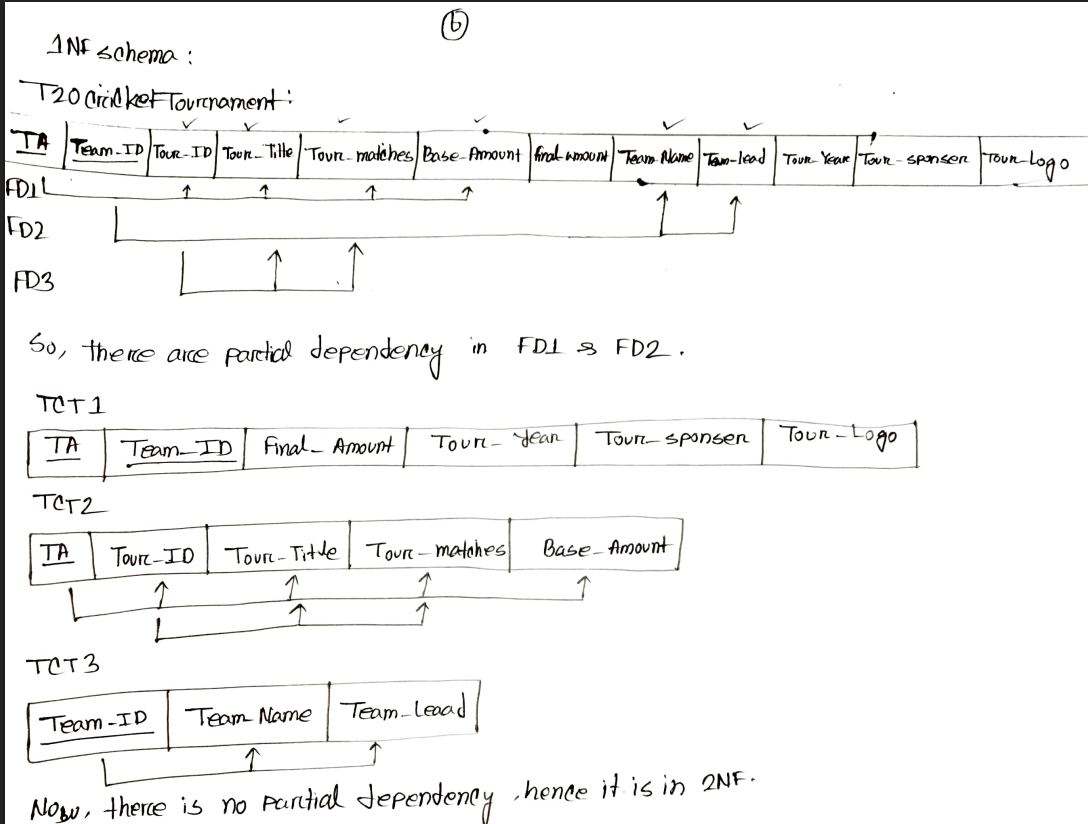 6
1NF schema :
T20 Cricket Tournament :
TA Team-ID Tour-ID Tour-Title Tour-matches Base-Amount final-amount Team-Name Team-lead Tour-Year Tour-sponser Tour-Logo
FD1
FD2
FD3
So, there are partial dependency in FD1 & FD2.
TCT1
TA Team-ID Final-Amount Tour-Year Tour-sponser Tour-Logo
TCT2
TA Tour-ID Tour-Title Tour-matches Base-Amount
TCT3
Team-ID Team Name Team-Leaad
Now, there is no partial dependency, hence it is in 2NF.